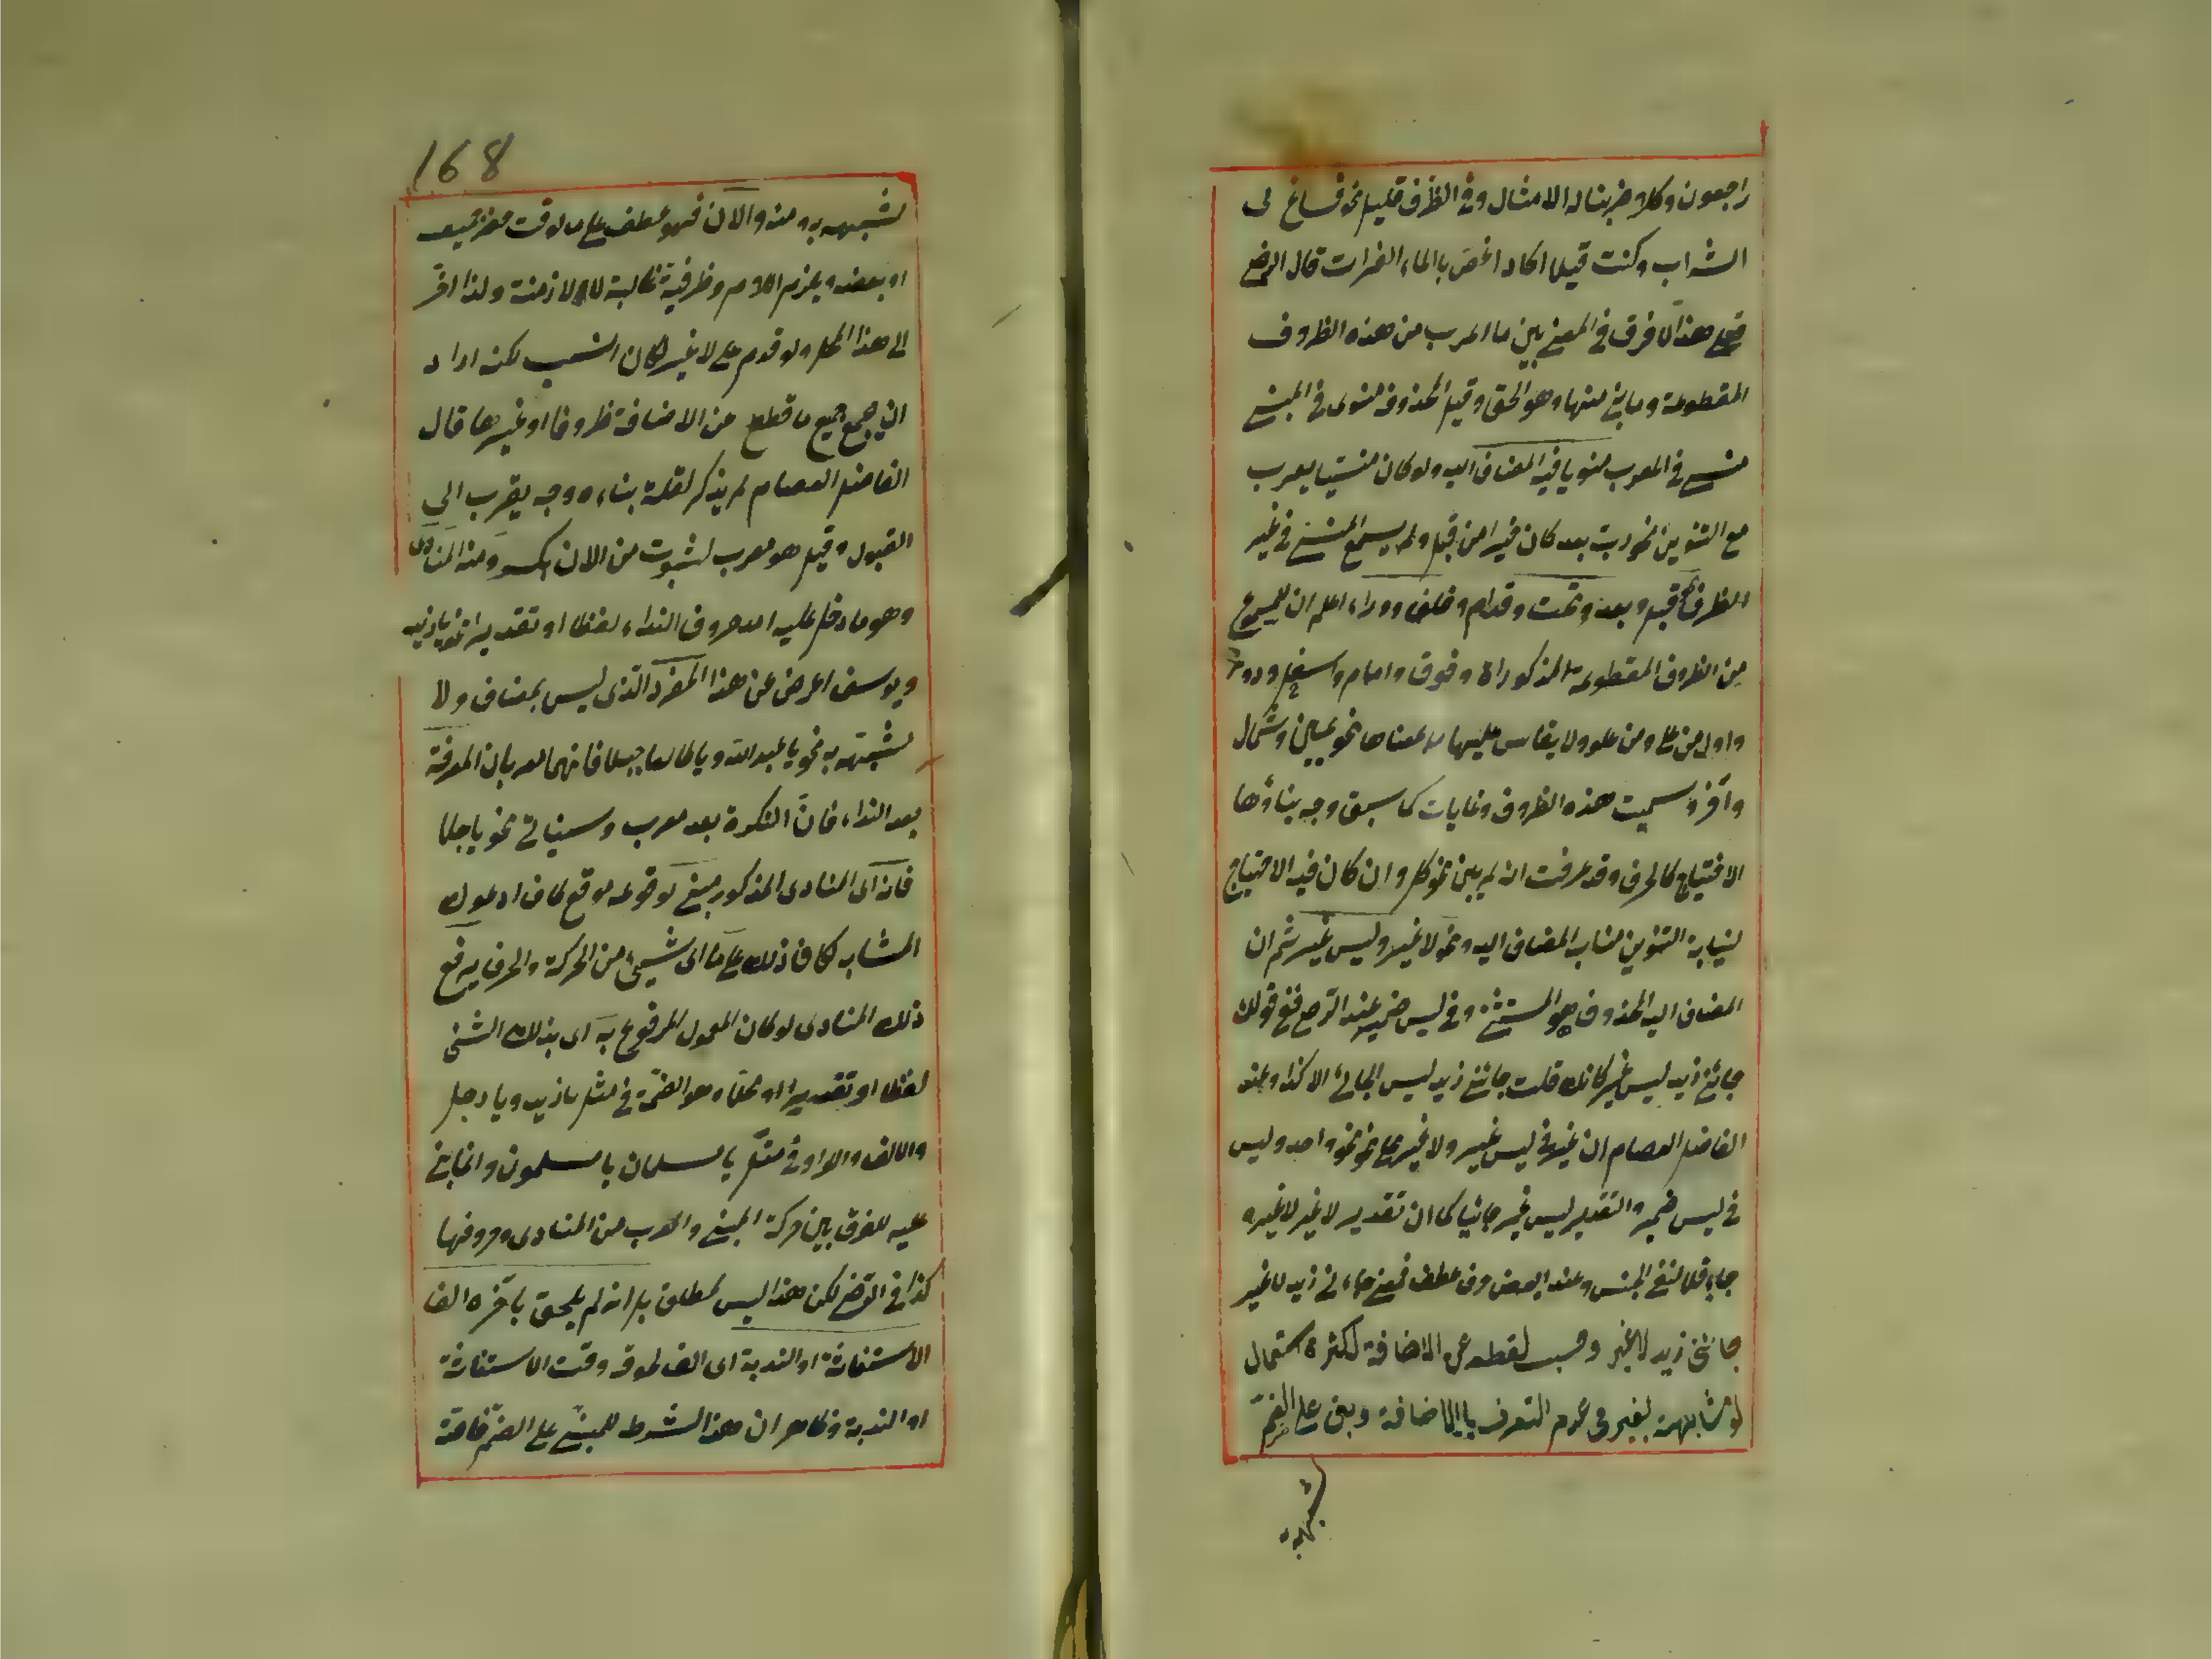 راجعون وكلا ضربنا له الامثال وفي الظرف قليل نحو فساغ لى
الشراب وكنت قبلا اكاد اغص بالماء الفرات قال الرضى
فعلى هذا لا فرق في المعنى بين ما اعرب من هذه الظروف
المقطوعة وما بنى منها وهو الحق وقيل المحذوف منوى في المبنى
منسى في المعرب منويا فيه المضاف اليه ولو كان منسيا يعرب
مع التنوين نحو رب بعد كان خيرا من قبل ولم يسمع المنسى في غير
الظرف نحو قبل وبعد وتحت وقدام وخلف ووراء اعلم ان المسموع
من الظروف المقطوعة المذكوراة وفوق وامام واسفل ودون
واول من عل ومن علو ولا يقاس عليها ما بمعناها نحو يمين وشمال
وآخر وسميت هذه الظروف وغايات كما سبق وجه بناؤها
الاحتياج كالحرف وقد عرفت انه لم يبن نحو كل وان كان فيه الاحتياج
لنيابة التنوين مناب المضاف اليه ونحو لا غير وليس غير ثم ان
المضاف اليه المحذوف هو المستثنى وفي ليس ضمير عند الرضى فمع قولك
جائنى زيد ليس غير كانك قلت جائنى زيد ليس الجائى الا كذا وعند
الفاضل العصام ان غير في ليس غير ولا غير على نحو نحو واحد وليس
في ليس ضمير والتقدير ليس غير جائيا كما ان تقدير لا غير لا غيره
جاء فلا لنفى الجنس وعند البعض حرف عطف فمعنى جاءنى زيد لا غير
جائنى زيد لا غير وحسب لقطعه عن الاضافة لكثرة استعمال
لمشابهة لغير في عدم التعرف بالاضافة وبنى على الضم
لشبهه به
168
لشبهه به ومنه والآن فهو عطف على ما لوقت حضر جميعه
او بعضه ويلزم اللام وظرفية غالبة لا لازمنة ولذا اخر
الى هذا المحل ولو قدم على لا غير لكان انسب لكنه اراد
ان يجمع جميع ما قطع عن الاضافة ظروفا او غيرها قال
الفاضل العصام لم يذكر لقلة بناءه وجه يقرب الى
القبول وقيل هو معرب لثبوت من الان بكسر ومنه المنادى
وهو ما دخل عليه احد حروف النداء لفظا او تقديرا نحو يا زيد
ويوسف اعرض عن هذا المفرد الذى ليس بمضاف ولا
لشبهه به نحو يا عبد الله ويا طالعا جبلا فانهما معربان المعرفة
بعد النداء فان النكرة بعد معرب وسيأتى نحو يا رجلا
فانه اى المنادى المذكور مبنى لوقوعه موقع كاف ادعوك
المشابه لكاف ذلك على ما اى شيئ من الحركة والحرف يرفع
ذلك المنادى لو كان المعمول المرفوع به اى بذلك الشئ
لفظا او تقديرا او محلا وهو الضمة في مثل يا زيد ويا رجل
والالف والواو في مثل يا مسلمان يا مسلمون وانما بنى
عليه للفرق بين حركة المبنى والمعرب من المنادى وحروفها
كذا في الرضى لكن هذا ليس بمطلق بل ان لم يلحق بآخره الف
الاستغاثة او الندبة اى الف لحوقه وقت الاستغاثة
او الندبة وظاهر ان هذا الشرط للمبنى على الضم خاصة